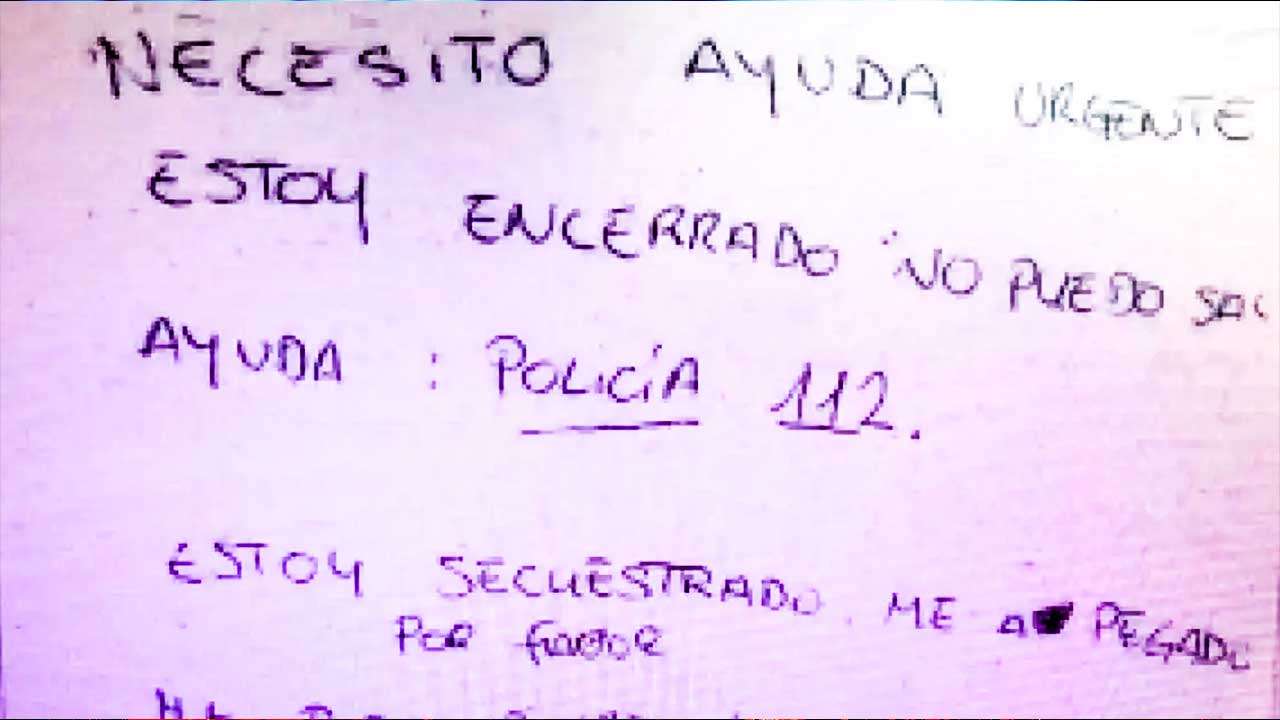 NECESITO AYUDA URGENTE
ESTOY ENCERRADO NO PUEDO
AYUDA : POLICÍA 112.
ESTOY SECUESTRADO. ME A PEGADO
POR favor